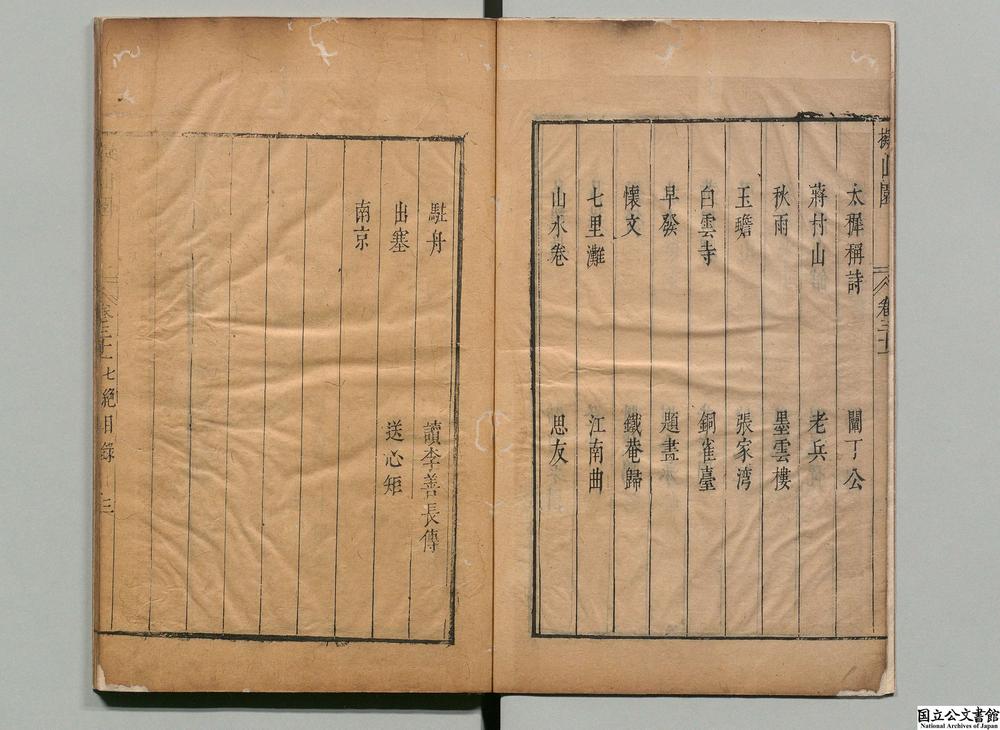 擬山園
卷三十二
太穉稱詩
闇丁公
蔣村山
老兵
秋雨
墨雲樓
玉蟾
張家湾
白雲寺
銅雀臺
早發
題畫
懷文
鐵菴歸
七里灘
江南曲
山水卷
思友
駐舟
讀李善長傳
出塞
送心矩
南京
卷三十二
七絕目錄
三
国立公文書館
National Archives of Japan